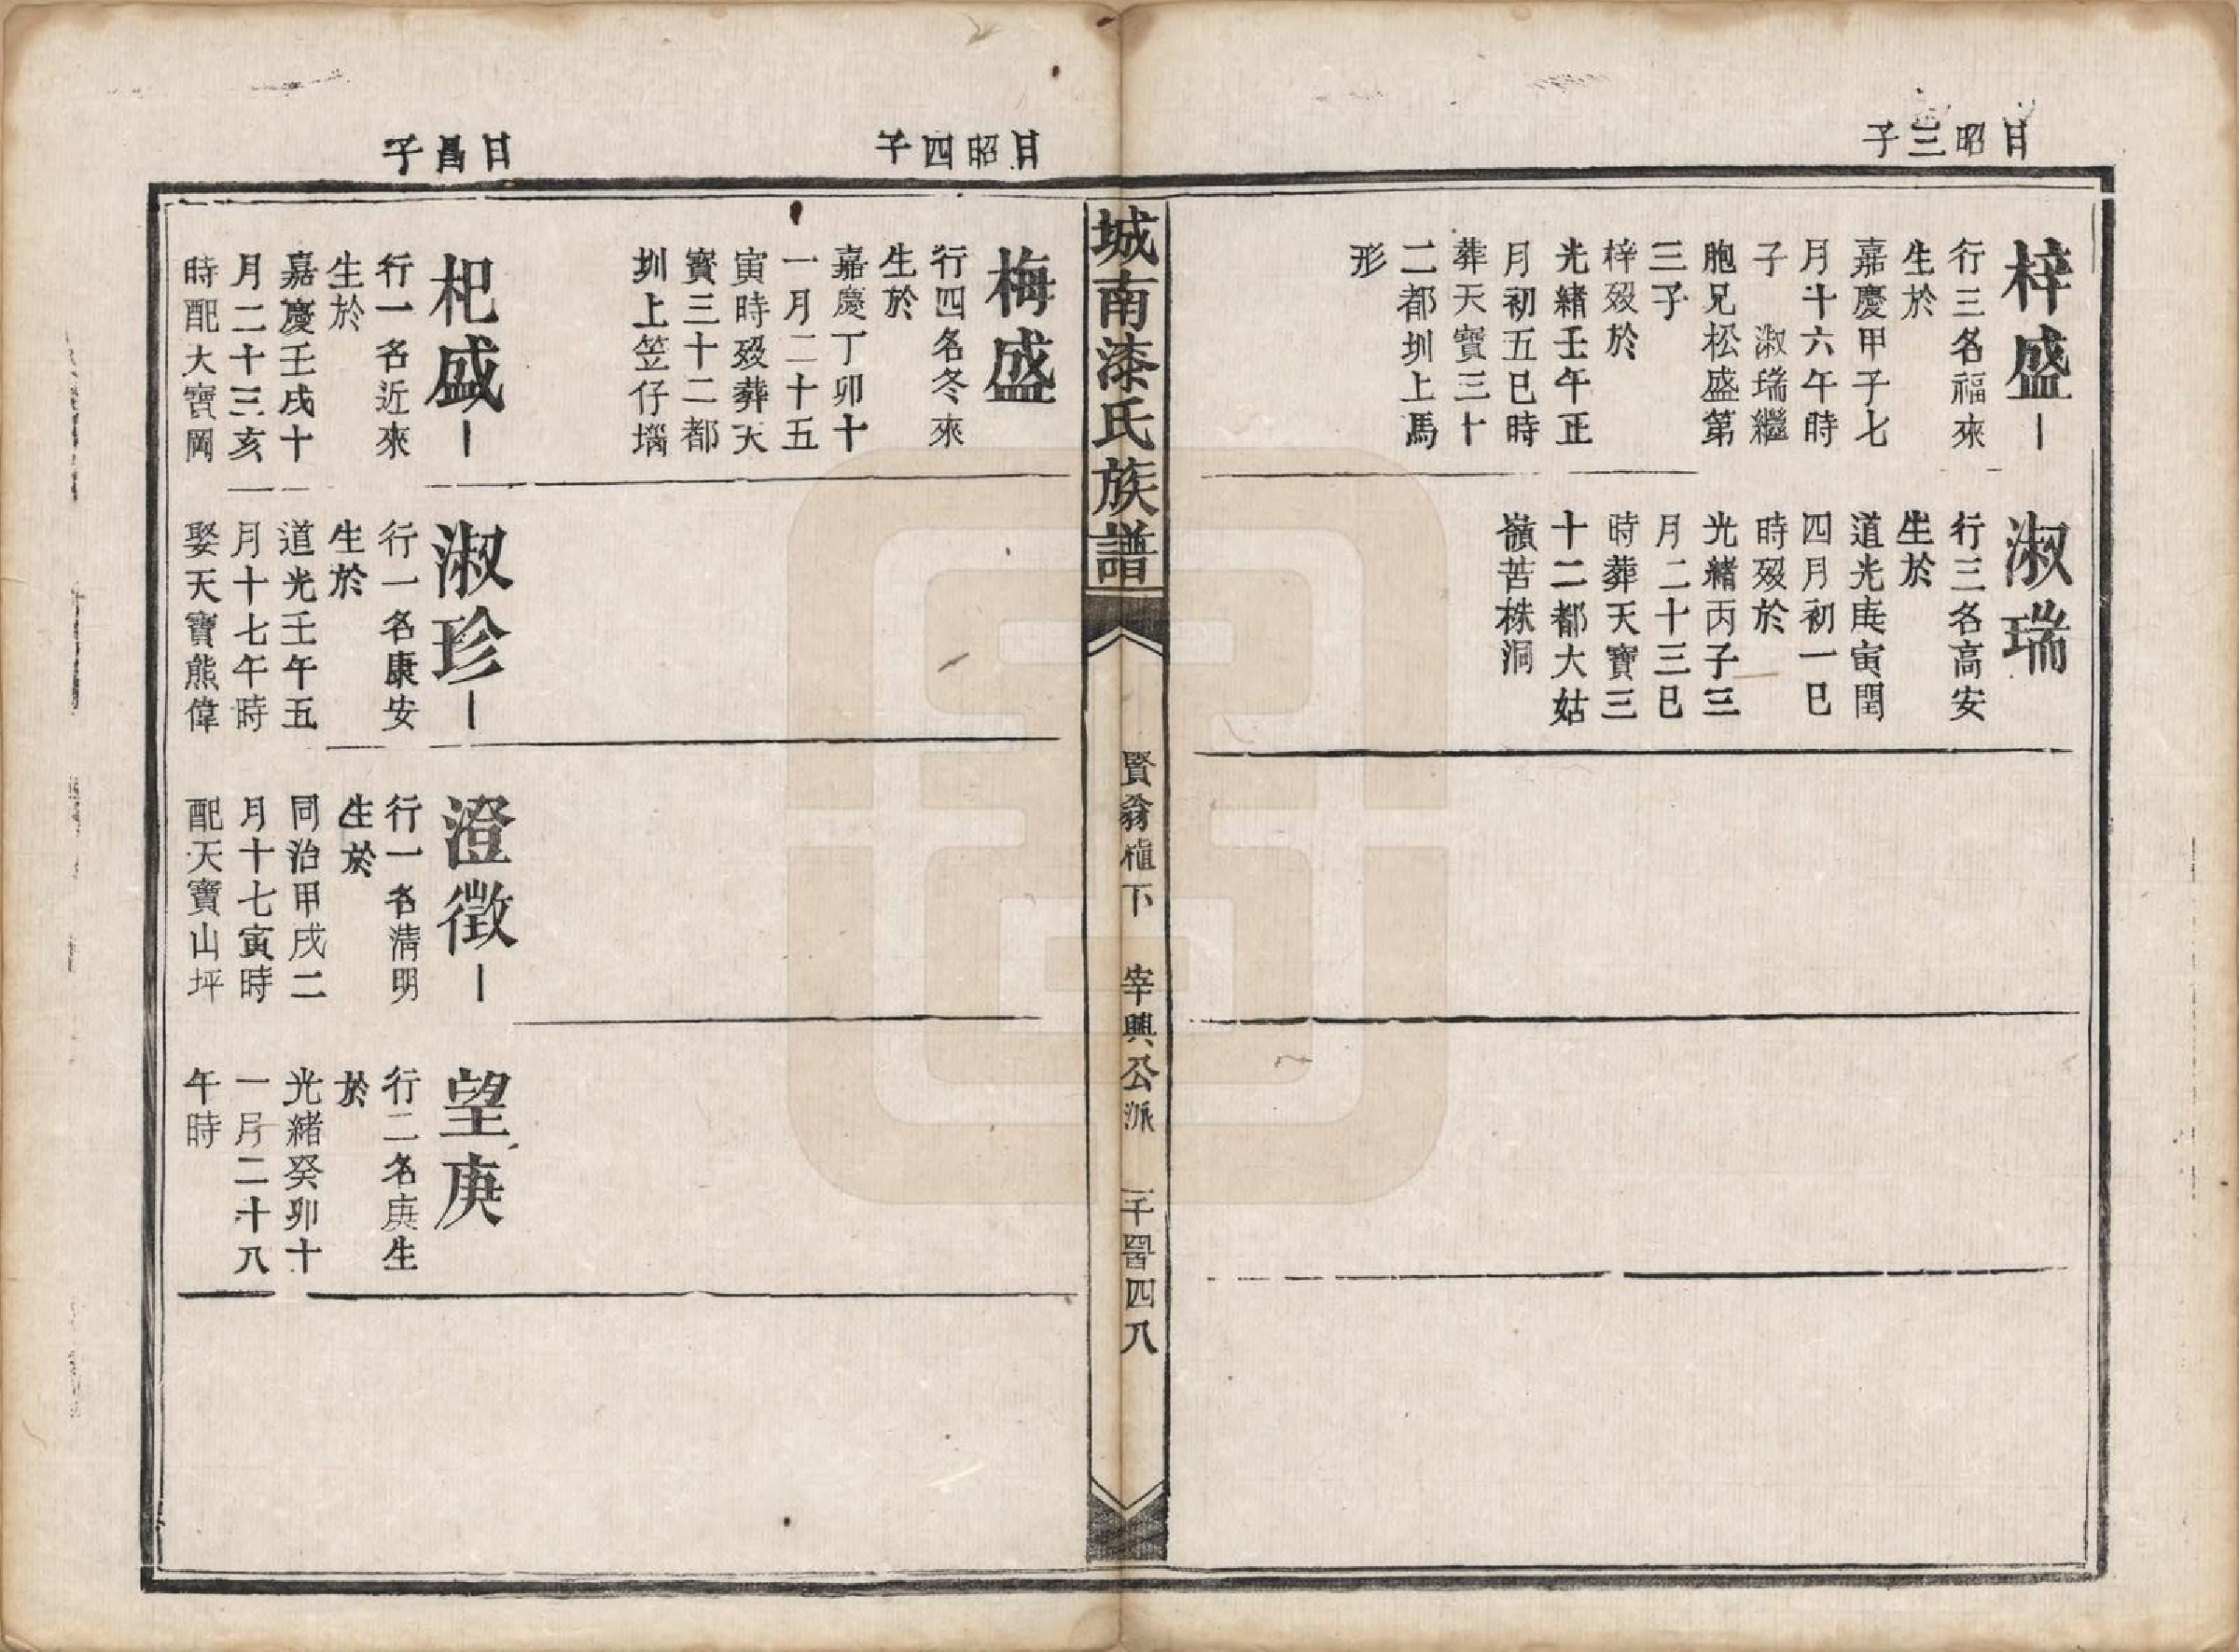 日昭三子
梓盛
行三名福來
生於
嘉慶甲子七
月十六午時
子 淑瑞繼
胞兄松盛第
三子
梓歿於
光緒壬午正
月初五巳時
葬天寶三十
二都圳上馬
形
淑瑞
行三名高安
生於
道光庚寅閏
四月初一巳
時歿於
光緒丙子三
月二十三巳
時葬天寶三
十二都大姑
嶺苦株洞
城南漆氏族譜
賢翁 下 宰興公派
日昭四子
梅盛
行四名冬來
生於
嘉慶丁卯十
一月二十五
寅時歿葬天
寶三十二都
圳上笠仔堖
日昌子
杞盛
行一名近來
生於
嘉慶壬戌十
月二十三亥
時配大寶岡
淑珍
行一名康安
生於
道光壬午五
月十七午時
娶天寶熊偉
澄徵
行一名清明
生於
同治甲戌二
月十七寅時
配天寶山坪
望庚
行二名庚生
於
光緒癸卯十
一月二十八
午時